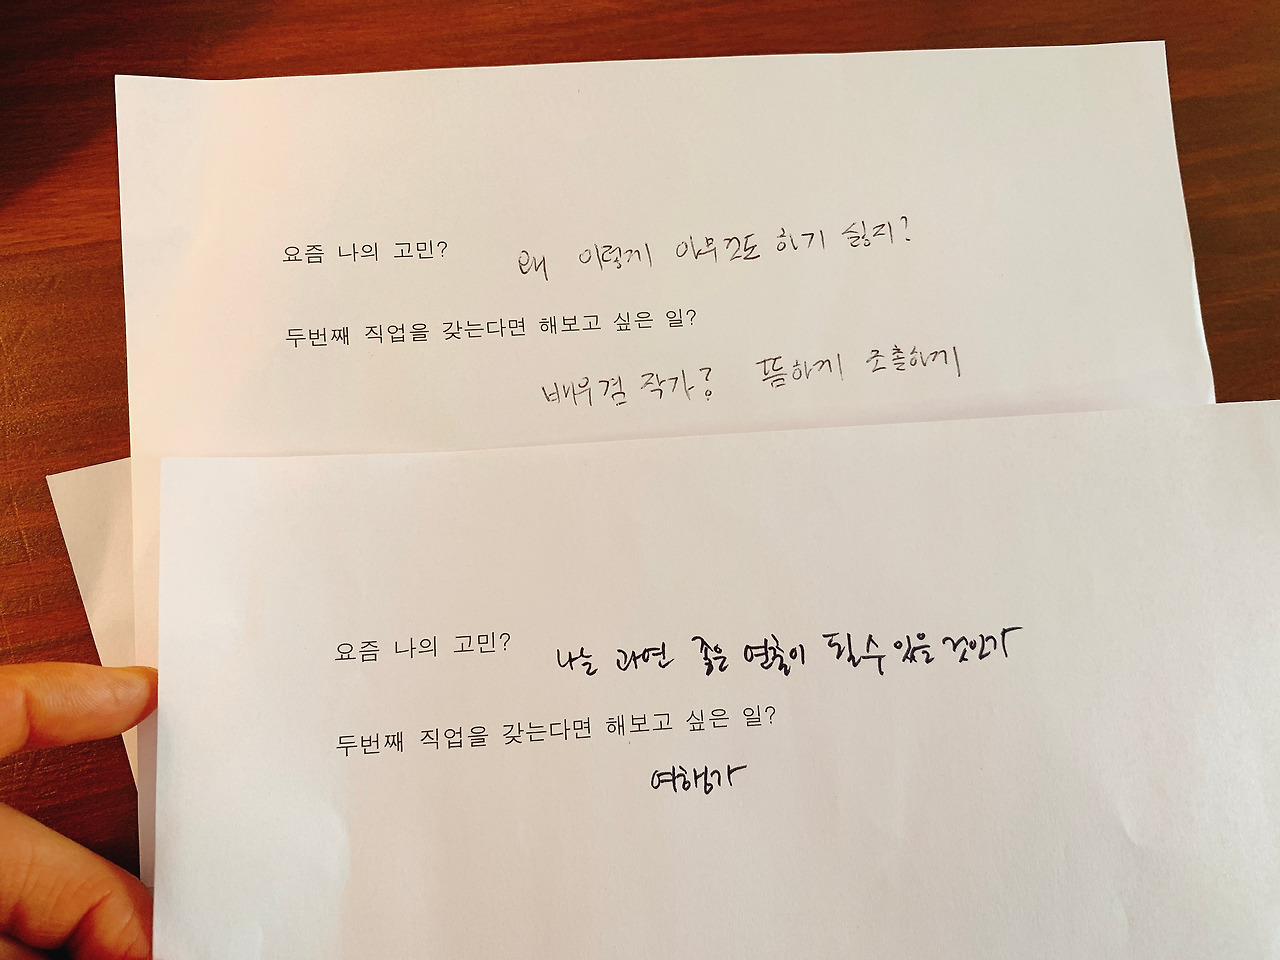 요즘 나의 고민? 왜 이렇게 아무것도 하기 싫지?
두번째 직업을 갖는다면 해보고 싶은 일?
배우겸 작가? 뜸하게 조촐하게
요즘 나의 고민? 나는 과연 좋은 연출이 될수 있을 것인가
두번째 직업을 갖는다면 해보고 싶은 일?
여행가